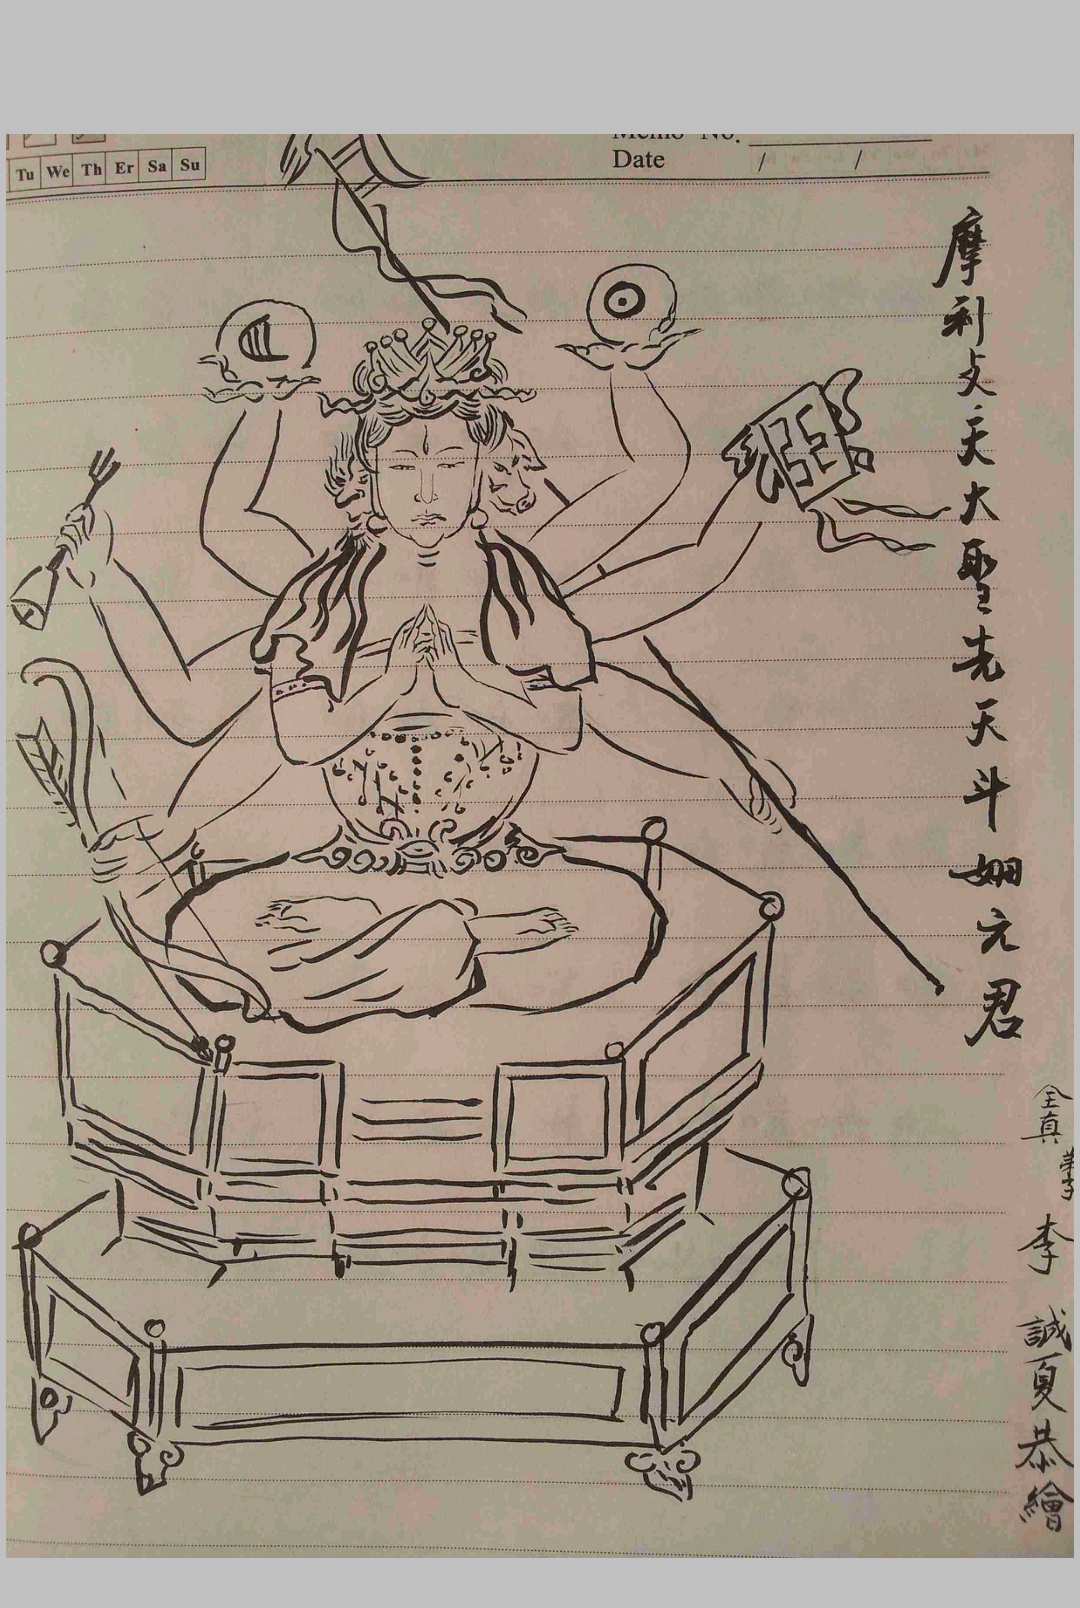 Memo No.
Tu We Th Er Sa Su
Date / /
摩利攴天大聖先天斗姆元君
全真弟子李誠夏恭繪